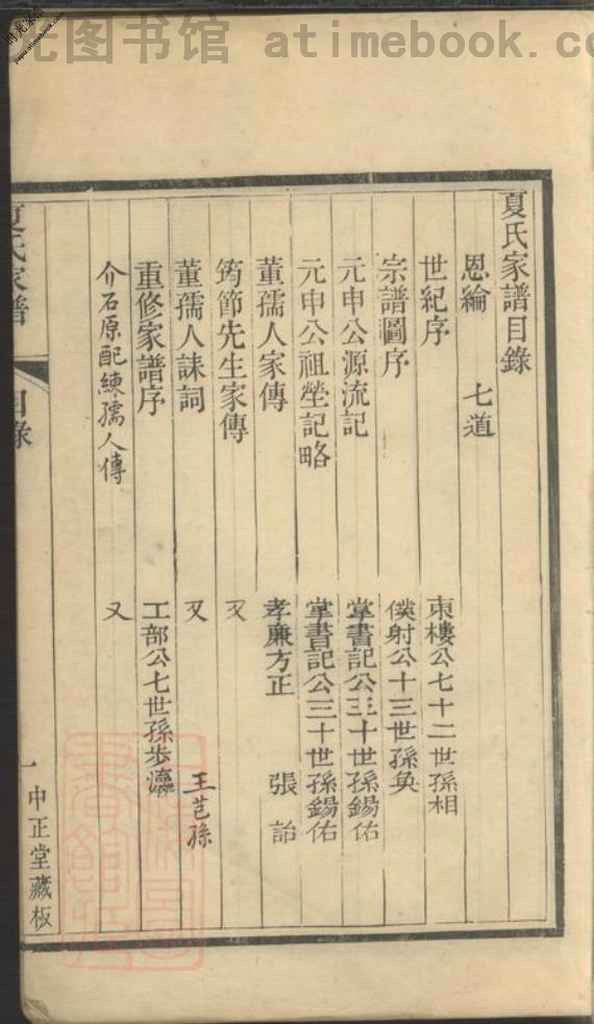 光图书馆 atimebook.co
夏氏家譜目錄
恩綸 七道
世紀序 東樓公七十二世孫相
宗譜圖序 僕射公十三世孫奐
元申公源流記 掌書記公三十世孫錫佑
元申公祖塋記略 掌書記公三十世孫錫佑
董孺人家傳 孝廉方正 張詒
筠節先生家傳 又
董孺人誄詞 又 王芑孫
重修家譜序 工部公七世孫步瀛
介石原配練孺人傳 又
夏氏家譜 目錄 一 中正堂藏板